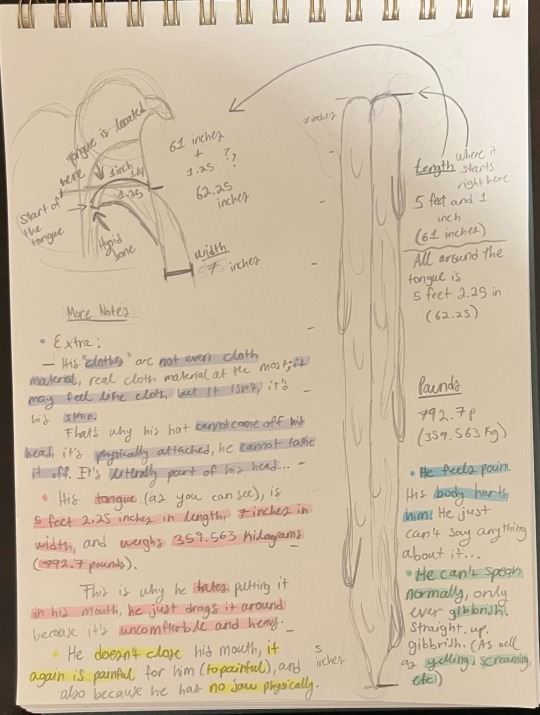 Tongue is located
here
1 inch
1/4
1.25
Start of
the
tongue
Hyoid
bone
61 inches
+ ?
1.25 ?
62.25
inches
width
7 inches
7 inches
Length where it
starts
right here
5 feet and 1
inch
(61 inches)
All around the
tongue is
5 feet 2.25 in
(62.25)
More Notes
• Extra:
– His "clothes" are not even cloth
material, real cloth material at the most, it
may feel like cloth, but it isn't, it's
his skin.
That's why his hat cannot come off his
head it's physically attached, he cannot take
it off. It's literally part of his head...
• His tongue (as you can see), is
5 feet 2.25 inches in length, 7 inches in
width, and weighs 359.563 kilograms
(792.7 pounds).
This is why he hates putting it
in his mouth, he just drags it around
because it's uncomfterble and heavy.
• He doesn't close his mouth, it
again is painful for him (to painful), and
also because he has no jaw physically.
5
inches
Pounds
792.7 p
(359.563 kg)
• He feels pain.
His body hurts
him! He just
can't say anything
about it...
• He can't speak
normally, only
ever gibbrish.
Straight. up.
gibbrish. (As well
as yelling, screaming,
etc)